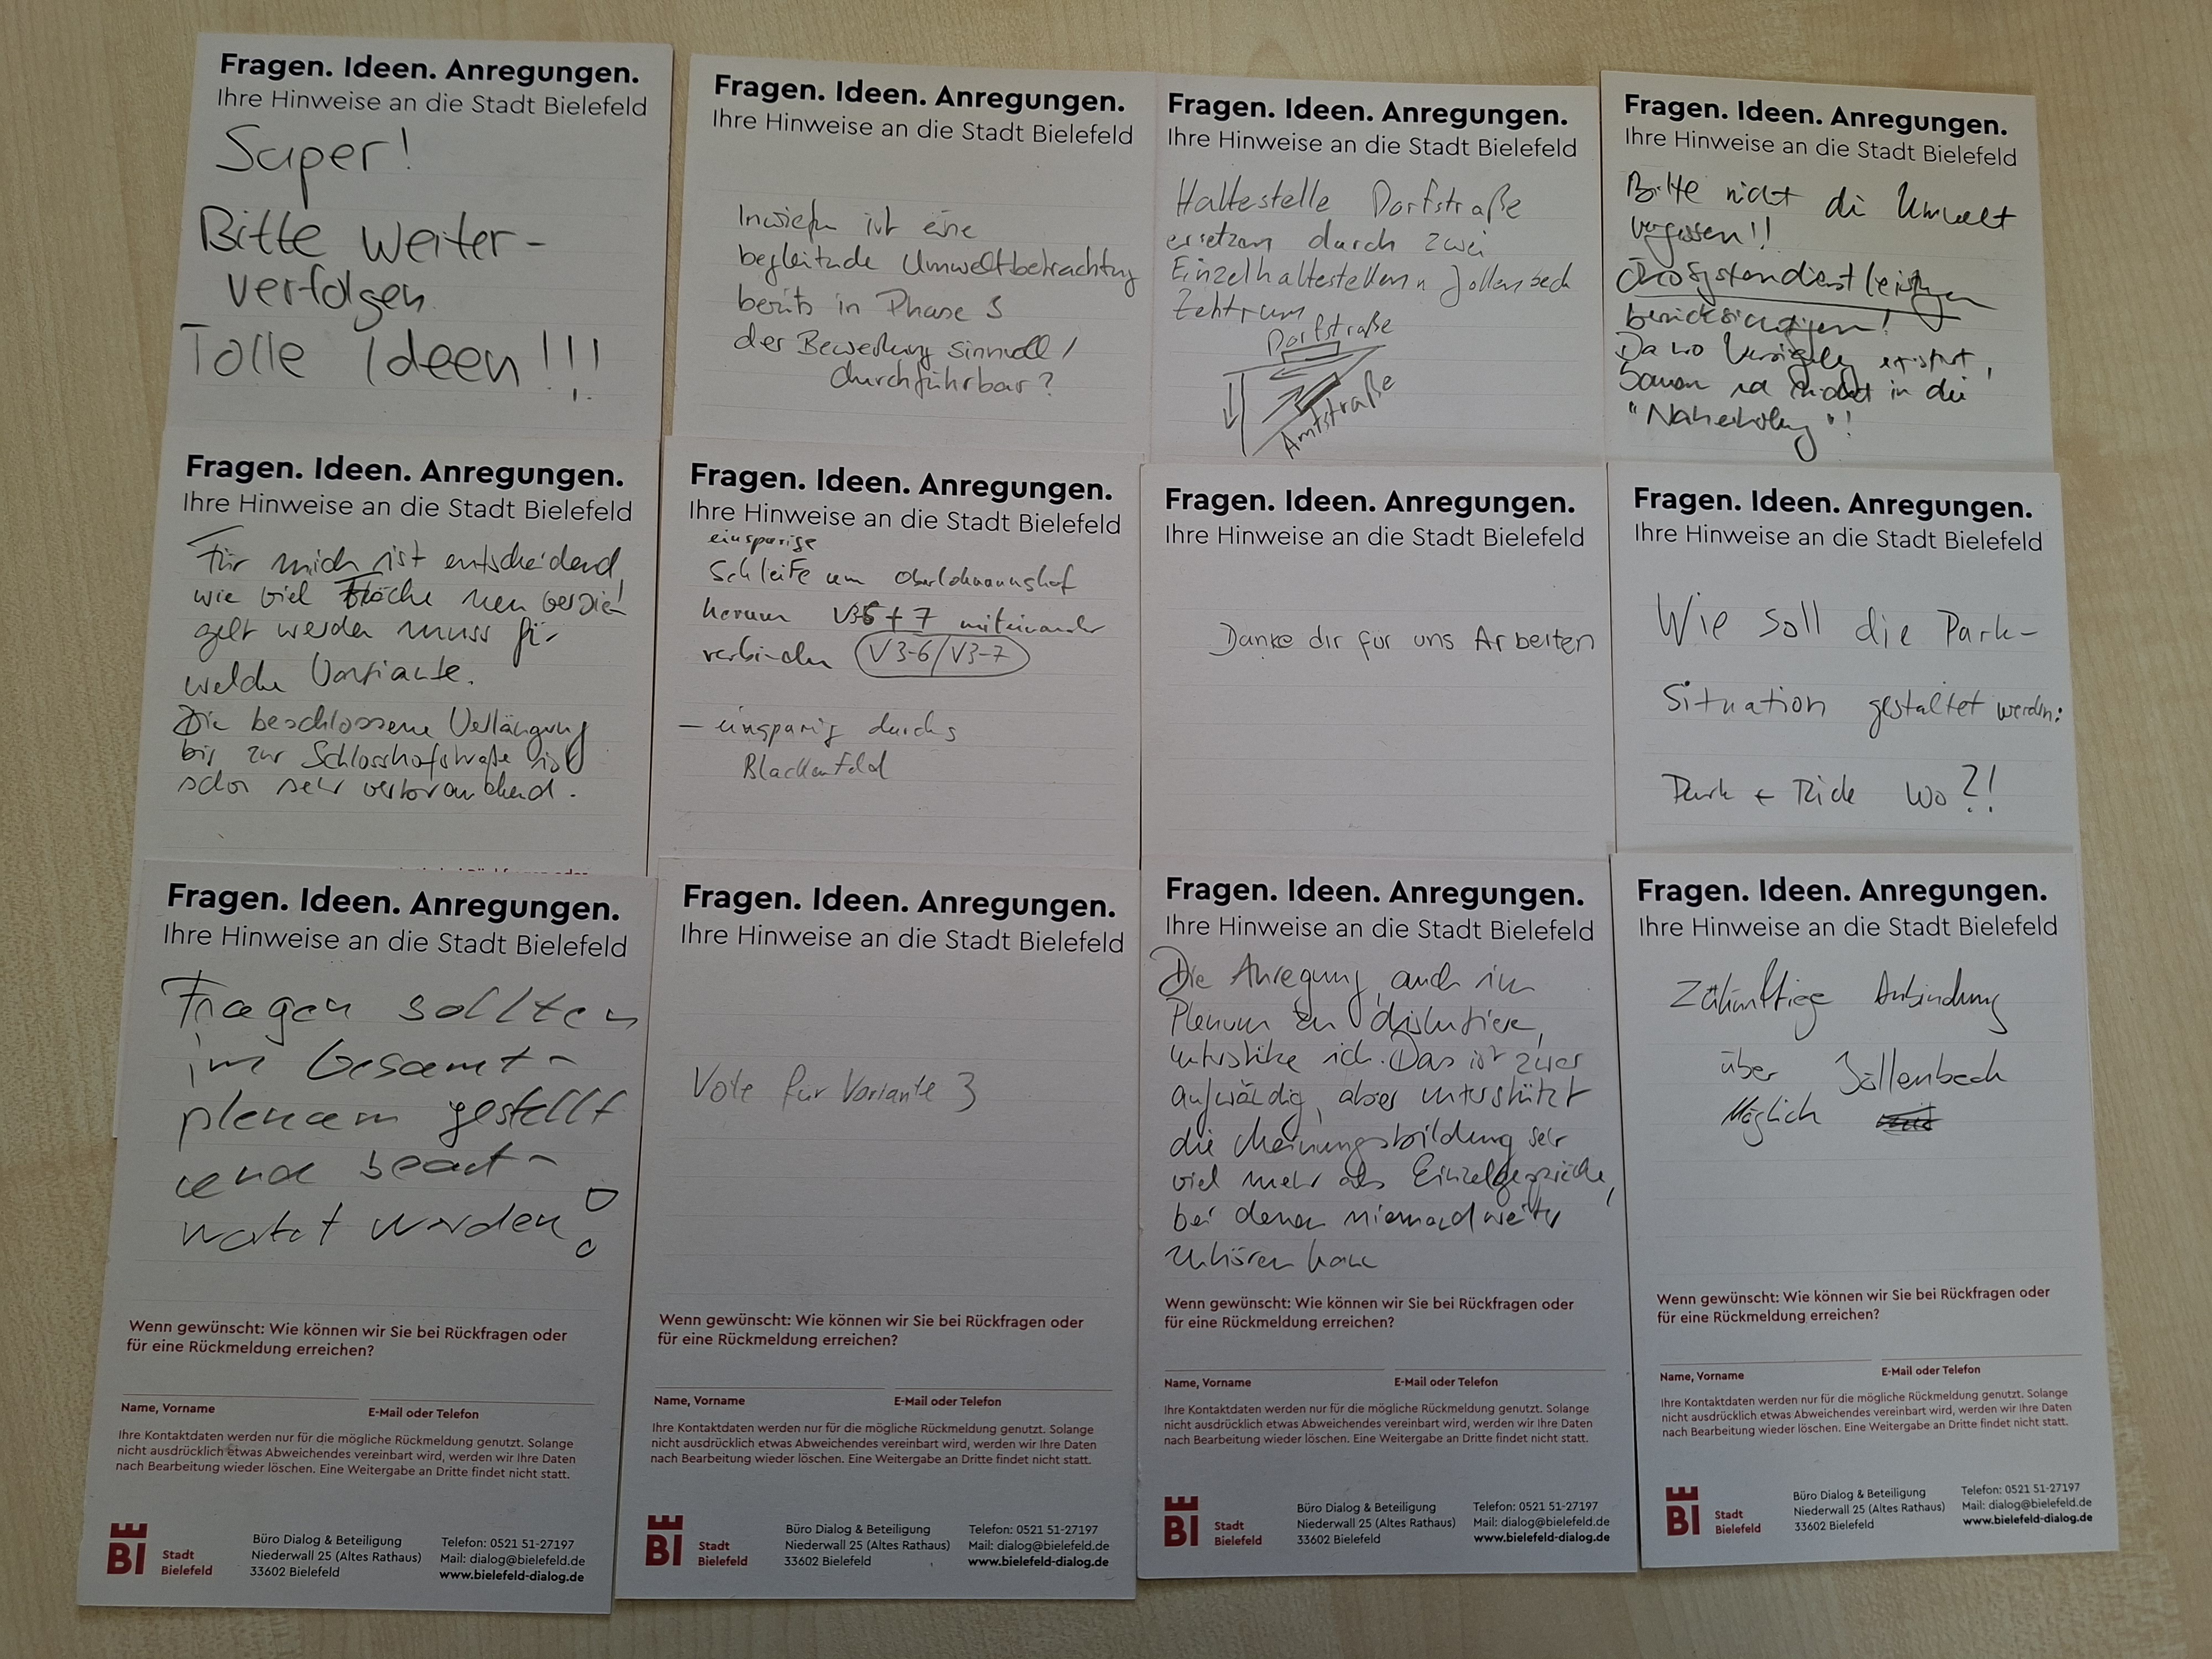 Fragen. Ideen. Anregungen.
Ihre Hinweise an die Stadt Bielefeld
Super!
Bitte weiter-
verfolgen
Tolle Ideen!!!
Fragen. Ideen. Anregungen.
Ihre Hinweise an die Stadt Bielefeld
Inwiefern ist eine
begleitende Umweltbetrachtung
bereits in Phase
der Bewertung sinnvoll /
durchführbar?
Fragen. Ideen. Anregungen.
Ihre Hinweise an die Stadt Bielefeld
Haltestelle Dorfstraße
ersetzen durch zwei
Einzelhaltestellen Jöllenbeck
Zentrum
Dorfstraße
Amtstraße
Fragen. Ideen. Anregungen.
Ihre Hinweise an die Stadt Bielefeld
Bitte nicht die Umwelt
vergessen!!
Ökosystemdienstleistungen
berücksichtigen!
Da wo Versiegelung
in die
"Naherholung"!
Fragen. Ideen. Anregungen.
Ihre Hinweise an die Stadt Bielefeld
Für mich ist entscheidend,
wie viel Fläche neu versie-
gelt werden muss für
welche Variante.
Die beschlossene Verlängerung
bis zur Schlosshofstraße ist
schon sehr verbrauchend.
Fragen. Ideen. Anregungen.
Ihre Hinweise an die Stadt Bielefeld
einspurige
Schleife um Oberlohmannshof
herum V3-6 + 7 miteinander
verbinden V3-6/V3-7
– einspurig durchs
Blackenfeld
Fragen. Ideen. Anregungen.
Ihre Hinweise an die Stadt Bielefeld
Danke dir für uns Arbeiten
Fragen. Ideen. Anregungen.
Ihre Hinweise an die Stadt Bielefeld
Wie soll die Park-
Situation gestaltet werden:
Park + Ride wo?!
Fragen. Ideen. Anregungen.
Ihre Hinweise an die Stadt Bielefeld
Fragen sollten
im Gesamt-
plenum gestellt
und beant-
wortet werden!
Wenn gewünscht: Wie können wir Sie bei Rückfragen oder
für eine Rückmeldung erreichen?
Name, Vorname
E-Mail oder Telefon
Ihre Kontaktdaten werden nur für die mögliche Rückmeldung genutzt. Solange
nicht ausdrücklich etwas Abweichendes vereinbart wird, werden wir Ihre Daten
nach Bearbeitung wieder löschen. Eine Weitergabe an Dritte findet nicht statt.
BI Stadt
Bielefeld
Büro Dialog & Beteiligung
Niederwall 25 (Altes Rathaus)
33602 Bielefeld
Telefon: 0521 51-27197
Mail: dialog@bielefeld.de
www.bielefeld-dialog.de
Fragen. Ideen. Anregungen.
Ihre Hinweise an die Stadt Bielefeld
Vote für Variante 3
Wenn gewünscht: Wie können wir Sie bei Rückfragen oder
für eine Rückmeldung erreichen?
Name, Vorname
E-Mail oder Telefon
Ihre Kontaktdaten werden nur für die mögliche Rückmeldung genutzt. Solange
nicht ausdrücklich etwas Abweichendes vereinbart wird, werden wir Ihre Daten
nach Bearbeitung wieder löschen. Eine Weitergabe an Dritte findet nicht statt.
BI Stadt
Bielefeld
Büro Dialog & Beteiligung
Niederwall 25 (Altes Rathaus)
33602 Bielefeld
Telefon: 0521 51-27197
Mail: dialog@bielefeld.de
www.bielefeld-dialog.de
Fragen. Ideen. Anregungen.
Ihre Hinweise an die Stadt Bielefeld
Die Anregung, auch im
Plenum zu diskutieren,
unterstütze ich. Das ist zwar
aufwändig, aber unterstützt
die Meinungsbildung sehr
viel mehr als Einzelgespräche,
bei denen niemand weiter
zuhören kann
Wenn gewünscht: Wie können wir Sie bei Rückfragen oder
für eine Rückmeldung erreichen?
Name, Vorname
E-Mail oder Telefon
Ihre Kontaktdaten werden nur für die mögliche Rückmeldung genutzt. Solange
nicht ausdrücklich etwas Abweichendes vereinbart wird, werden wir Ihre Daten
nach Bearbeitung wieder löschen. Eine Weitergabe an Dritte findet nicht statt.
BI Stadt
Bielefeld
Büro Dialog & Beteiligung
Niederwall 25 (Altes Rathaus)
33602 Bielefeld
Telefon: 0521 51-27197
Mail: dialog@bielefeld.de
www.bielefeld-dialog.de
Fragen. Ideen. Anregungen.
Ihre Hinweise an die Stadt Bielefeld
Zukünftige Anbindung
über Jöllenbeck
Möglich
Wenn gewünscht: Wie können wir Sie bei Rückfragen oder
für eine Rückmeldung erreichen?
Name, Vorname
E-Mail oder Telefon
Ihre Kontaktdaten werden nur für die mögliche Rückmeldung genutzt. Solange
nicht ausdrücklich etwas Abweichendes vereinbart wird, werden wir Ihre Daten
nach Bearbeitung wieder löschen. Eine Weitergabe an Dritte findet nicht statt.
BI Stadt
Bielefeld
Büro Dialog & Beteiligung
Niederwall 25 (Altes Rathaus)
33602 Bielefeld
Telefon: 0521 51-27197
Mail: dialog@bielefeld.de
www.bielefeld-dialog.de